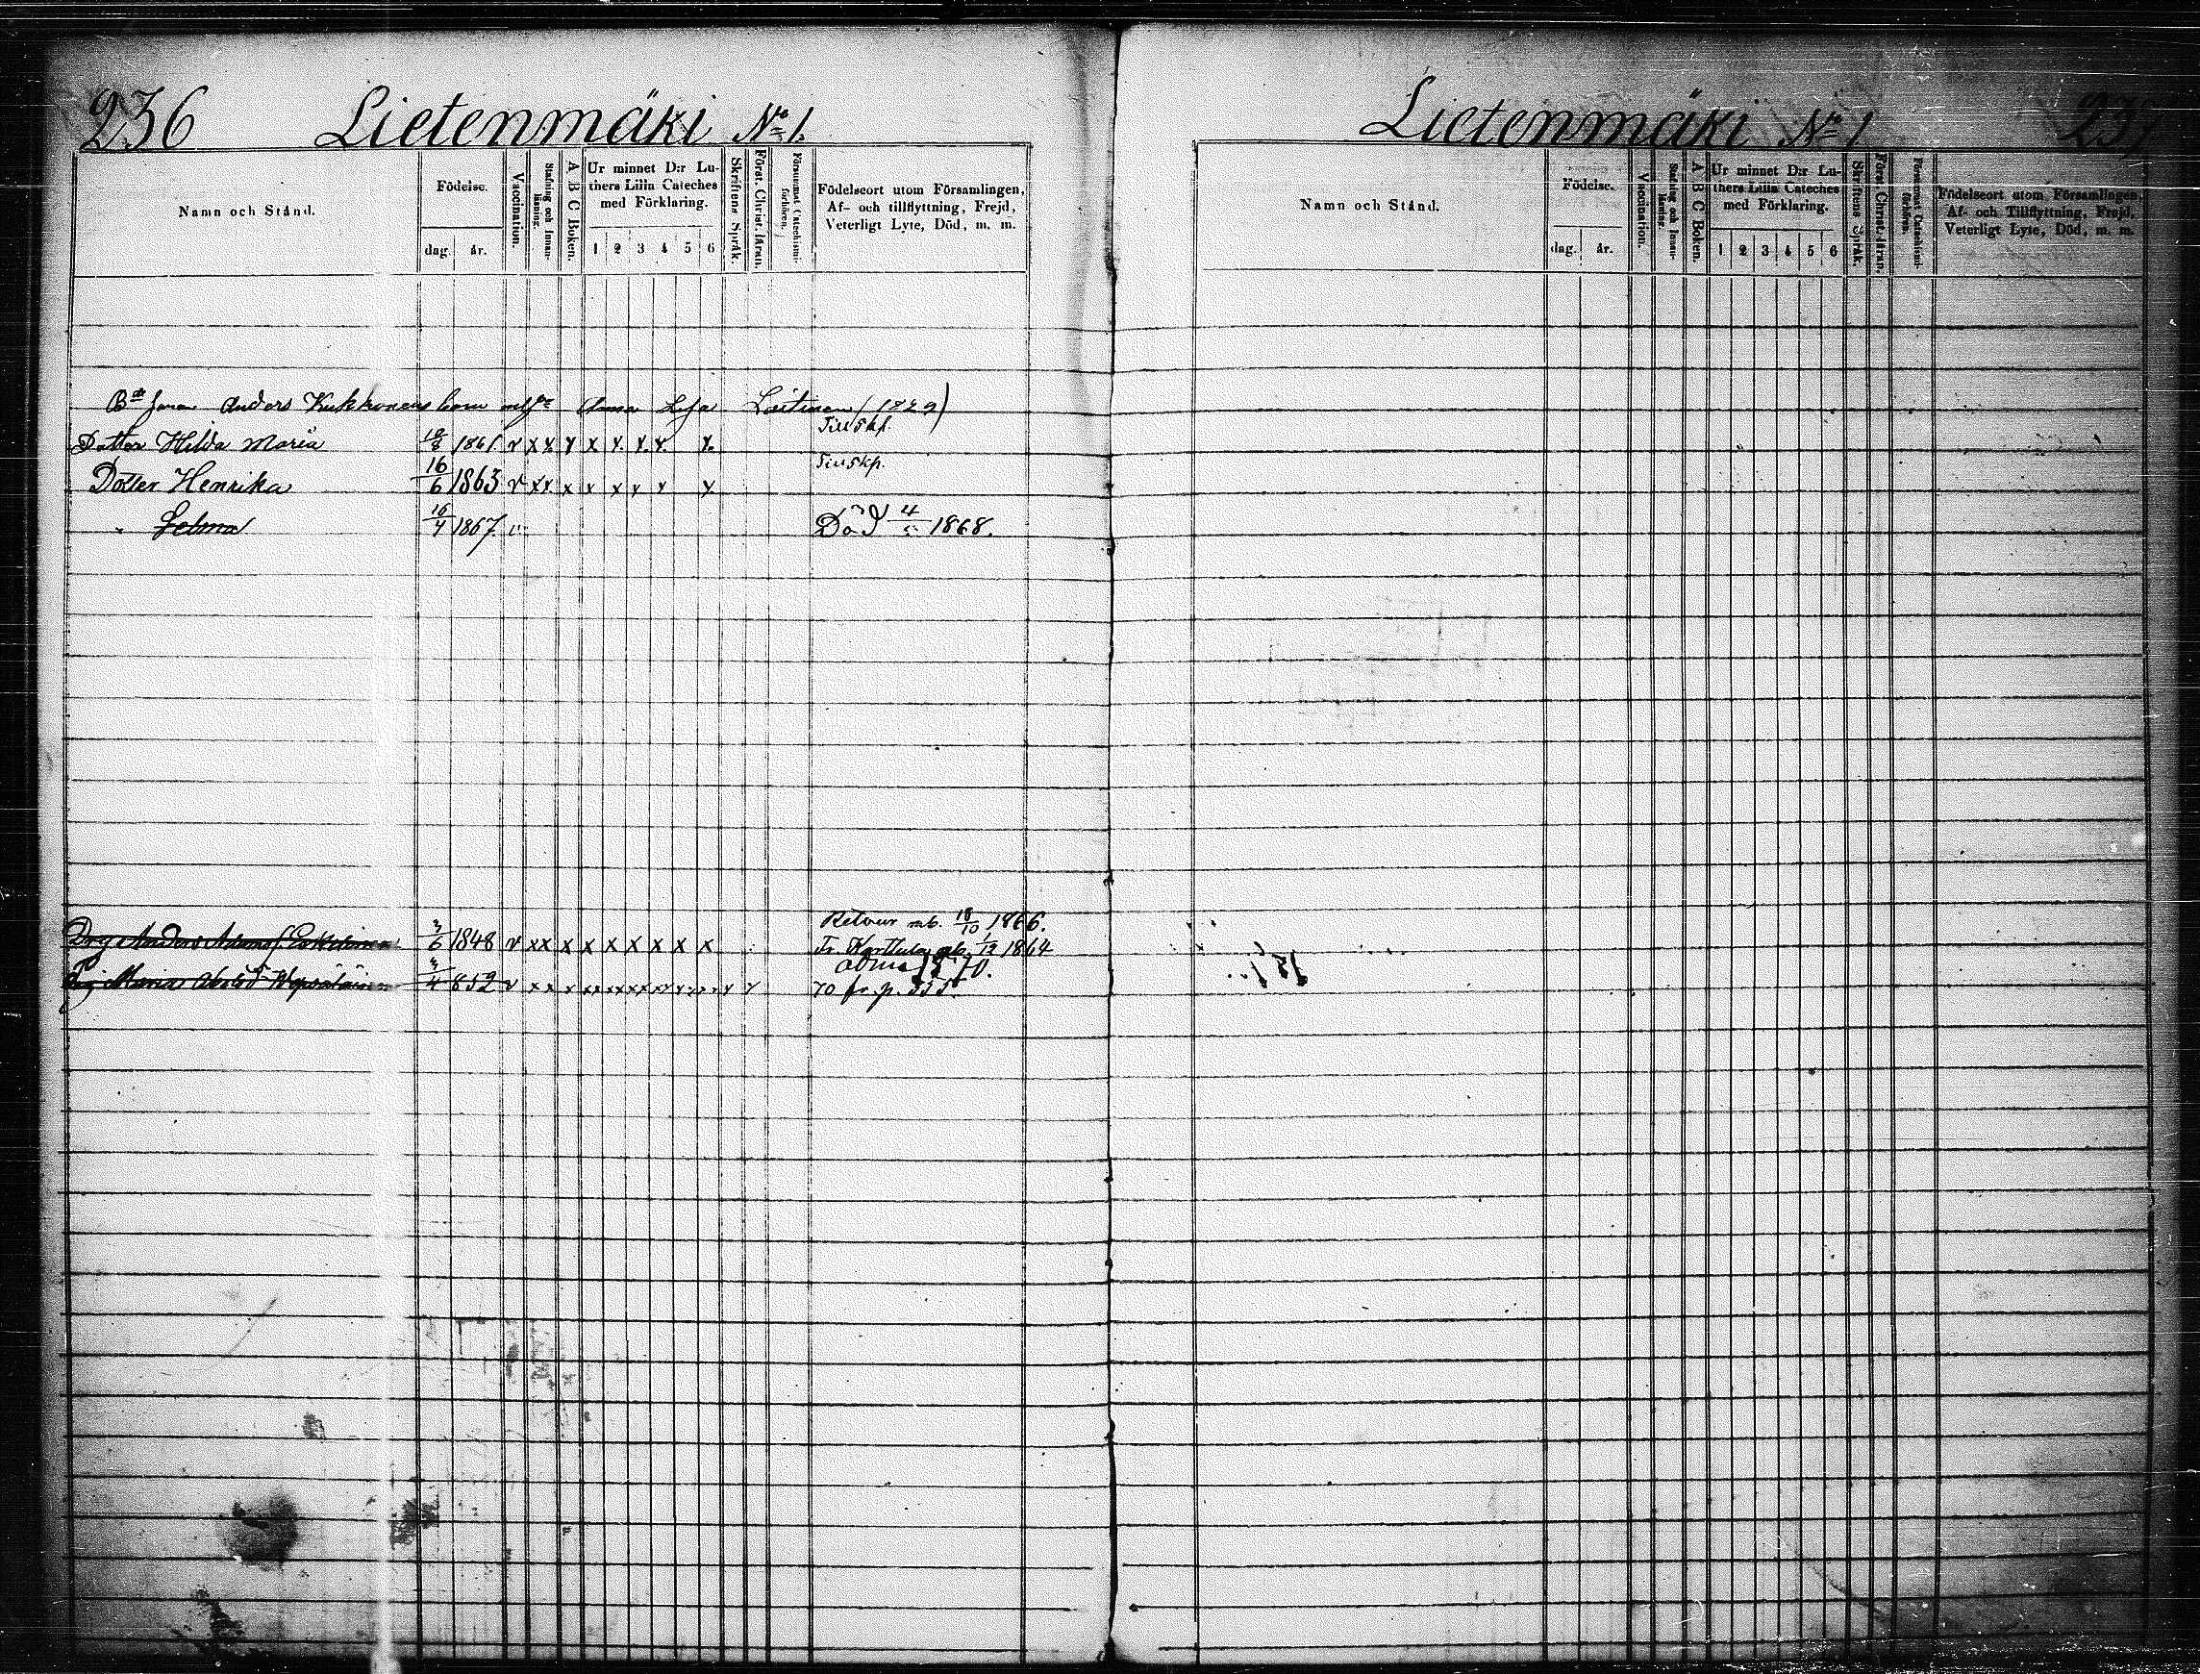 236 Lietenmäki No 1.
Namn och Stånd.
Födelse.
dag. år.
Vaccination.
Stafning och Innan-läsning.
A B C Boken.
Ur minnet D:r Lu-
thers Lilla Cateches
med Förklaring.
1 2 3 4 5 6
Skriftens Språk.
Förat. Christ. läran.
Försummat Catechismi-förhören.
Födelseort utom Församlingen,
Af- och tillflyttning, Frejd,
Veterligt Lyte, Död, m. m.
Anders Kukkonens barn Anna Laitinen (1829)
Till skp.
Dotter Hilda Maria 1861. v x x x x x x x x
Till skp.
Dotter Henrika 16/6 1863 v x x x x x x x x
" Selma 1867. v Död 4 1868.
Retour mb. 18/10 1866.
Drg Anders 3/6 1848 v x x x x x x x x x Fr. Karttula mb. 1864
70.
Pig Maria 3/4 852 v x x x x x x x x x x 70 fr. p. 335.
Lietenmäki No 1 237
Namn och Stånd.
Födelse.
dag. år.
Vaccination.
Stafning och Innan-läsning.
A B C Boken.
Ur minnet D:r Lu-
thers Lilla Cateches
med Förklaring.
1 2 3 4 5 6
Skriftens Språk.
Förat. Christ. läran.
Försummat Catechismi-förhören.
Födelseort utom Församlingen,
Af- och Tillflyttning, Frejd,
Veterligt Lyte, Död, m. m.